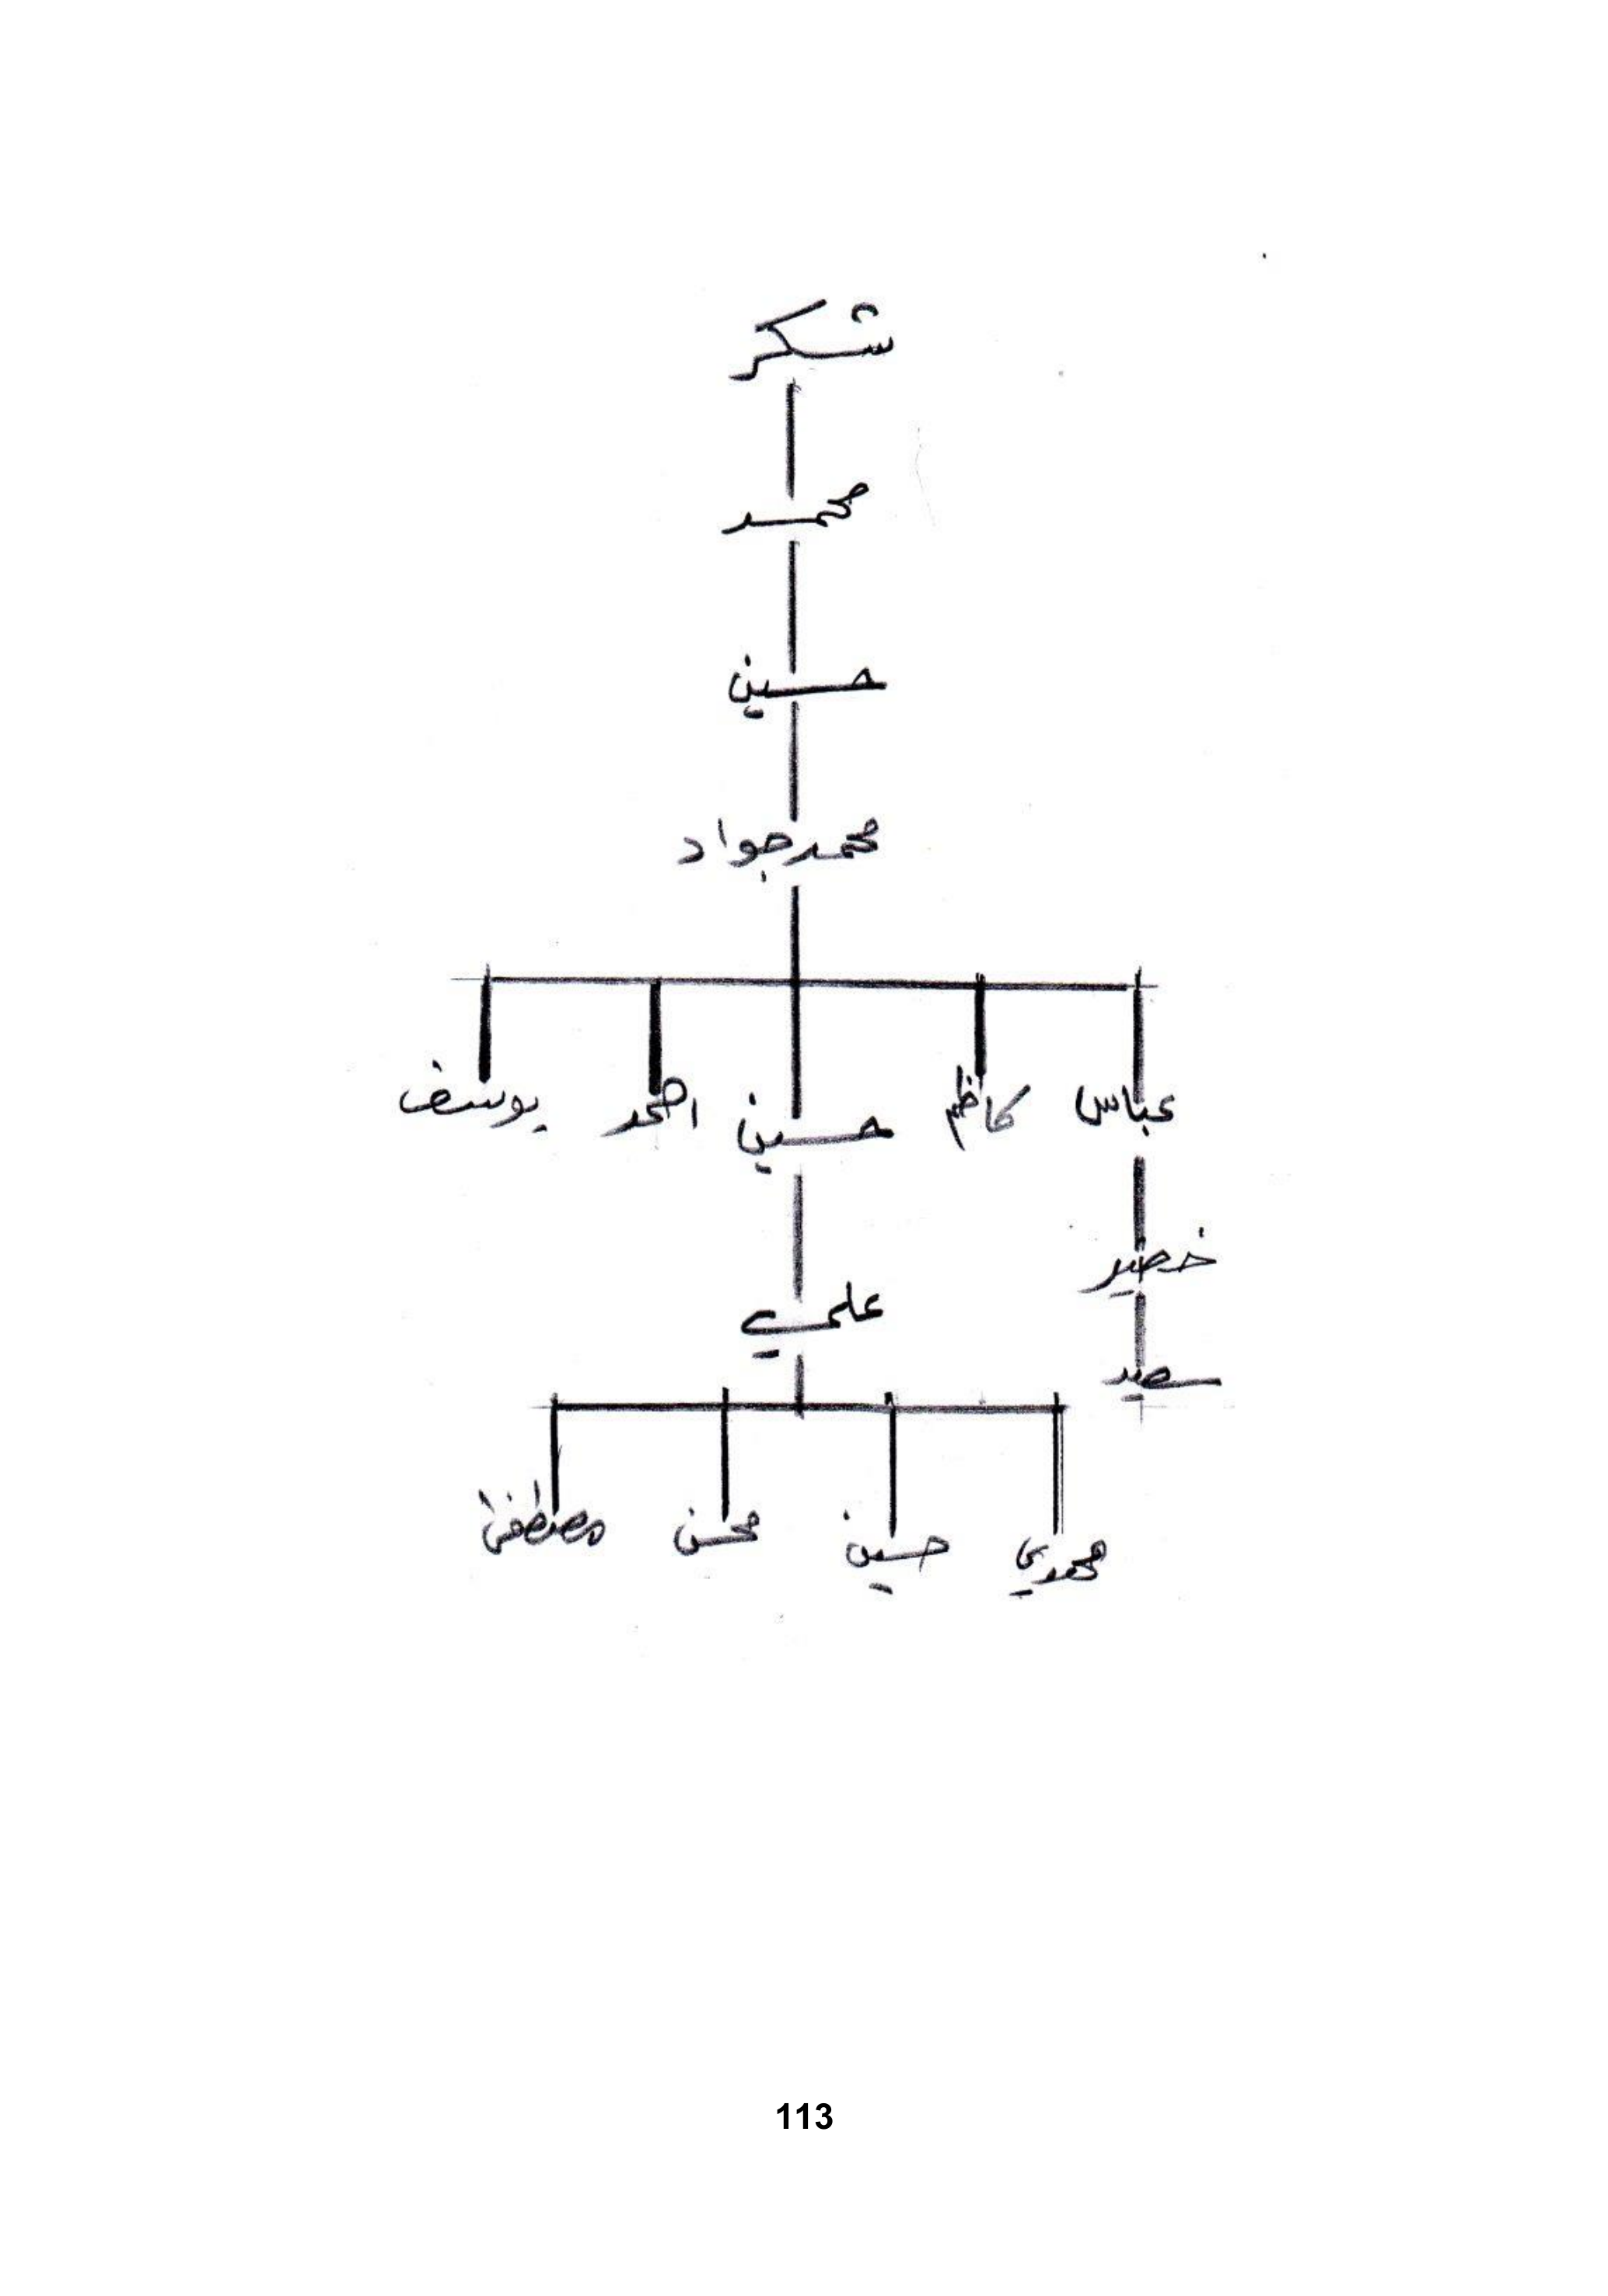 شكر
محمد
حسين
محمد جواد
عباس كاظم حسين احمد يوسف
خضير
علي
سعيد
حسين محسن مصطفى
113